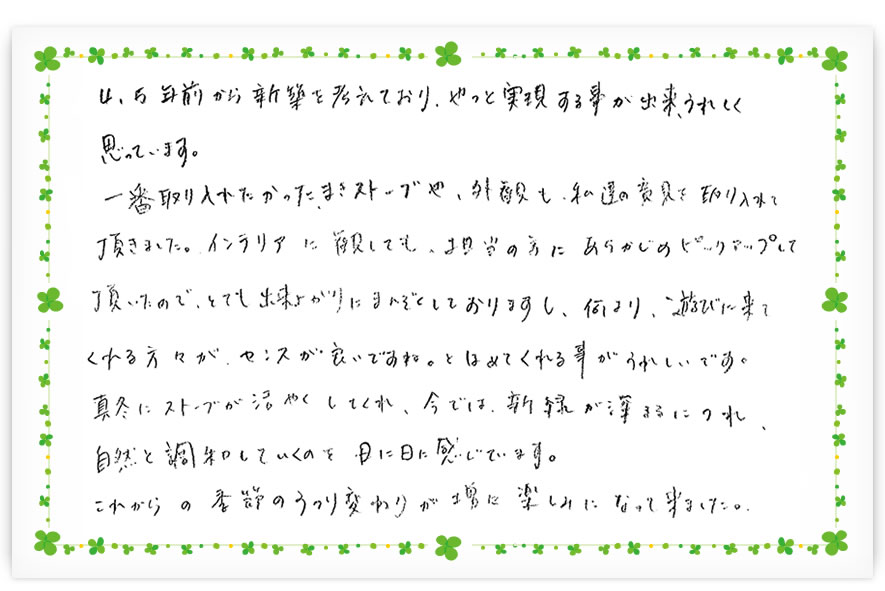 4、5年前から新築を考えており、やっと実現する事が出来、うれしく
思っています。
一番取り入れたかった、まきストーブや、外観も、私達の意見を取り入れて
頂きました。インテリアに観しても、担当の方にあらかじめピックアップして
頂いたので、とても出来上がりにまんぞくしておりますし、何より、遊びに来て
くれる方々が、センスが良いですね。とほめてくれる事がうれしいです。
真冬にストーブが活やくしてくれ、今では、新緑が深まるにつれ、
自然と調和していくのを日に日に感じています。
これからの季節のうつり変わりが増に楽しみになって来ました。